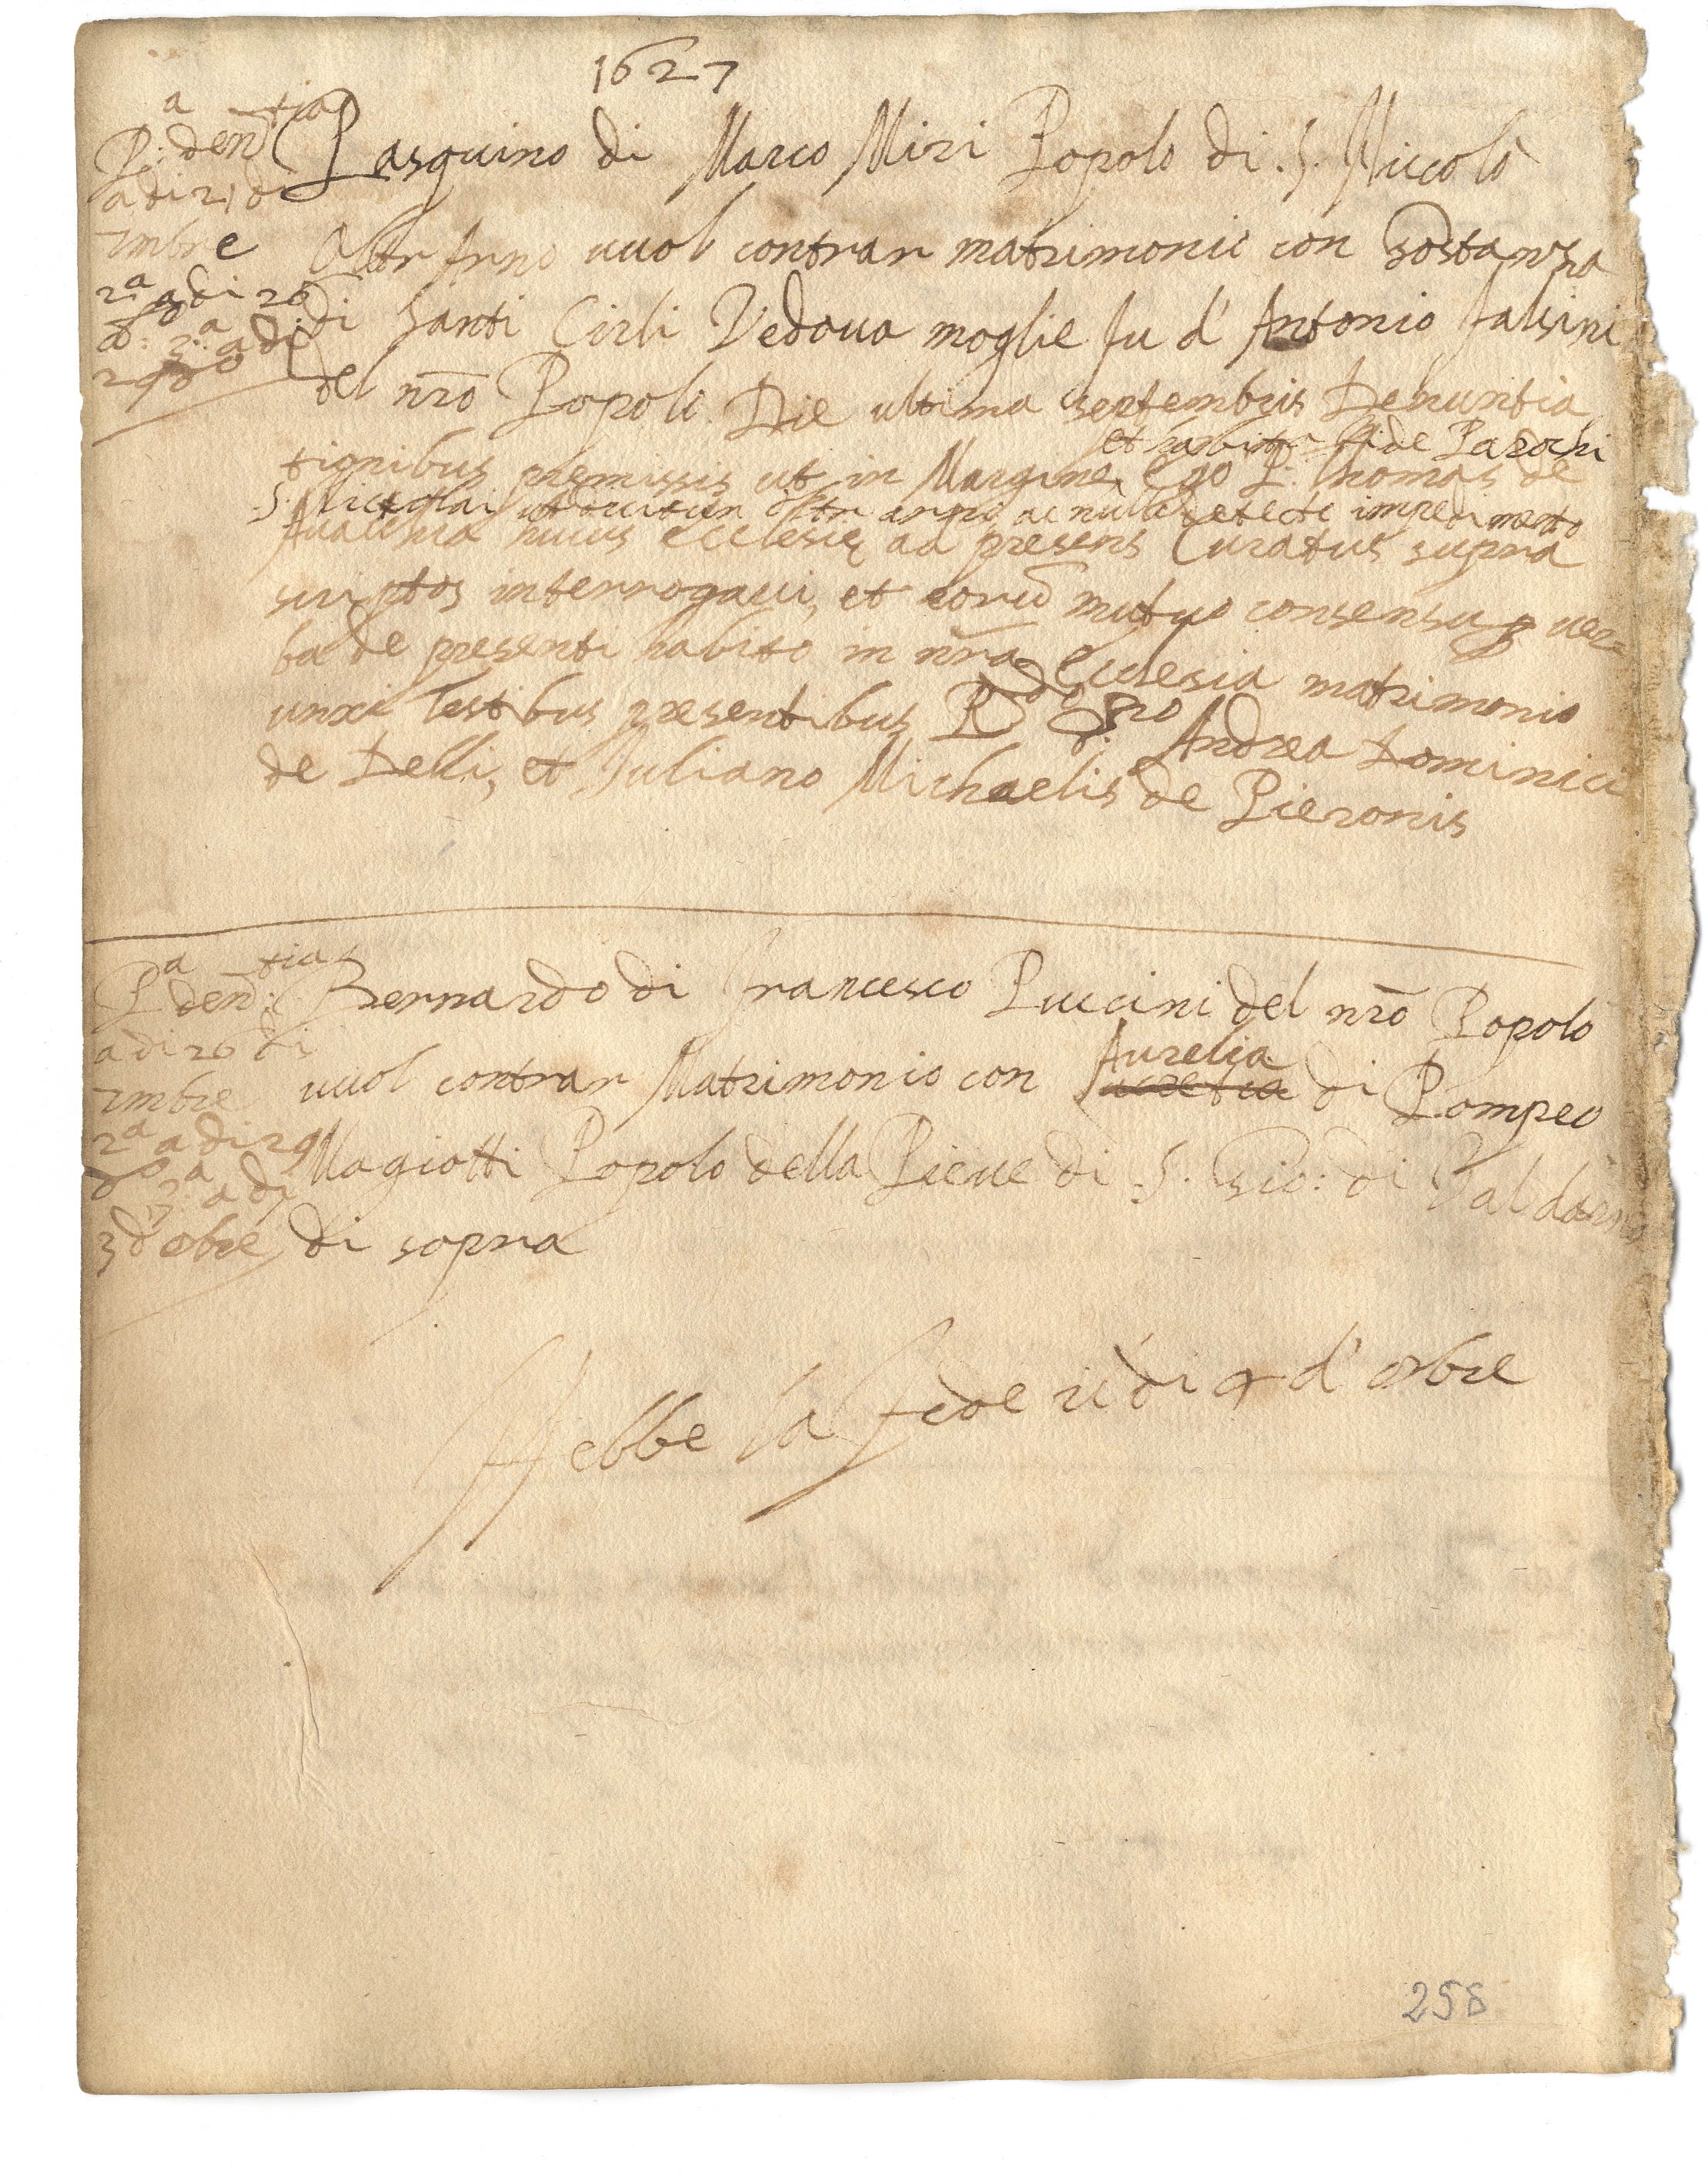 1627
P:a den:tia
adi 21 di
7mbre
2a adi 26
do: 3:a adi
29 do
Pasquino di Marco Miri Popolo di .S. Niccolò
oltr Arno vuol contrar matrimonio con Gostanza
di Santi Cirli Vedova moglie fu d' Antonio Falsini
del nr̃o Popolo. Die ultima septembris Denuntia
et habita fide Parochi
tionibus premissis ut in Margine, Ego P. Thomas de
S. Niccolai ut dicitur oltr arno ac nullo detecto impedimento
huius ecclesie ad presens Curatus supra
scriptos interrogavi, et eorũ mutuo consensu p ver
ba de presenti habito in nr̃a Ecclesia matrimonio
iunxi Testibus presentibus Rdo Dno Andrea Dominici
de Delli, et Juliano Michaelis de Pieronis
Pa den:tia
adi 26 di
7mbre
2a adi 29
do 3:a adi
3 d' 8bre
Bernardo di Francesco Puccini del nr̃o Popolo
vuol contrar Matrimonio con Aurelia di Pompeo
Magiotti Popolo della Pieve di .S. Gio: di Valdarno
di sopra
Hebbe la fede adi 4 d' 8bre
258